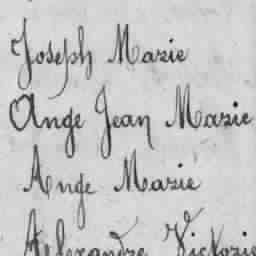 Joseph Marie
Ange Jean Marie
Ange Marie
Alexandre Victorie